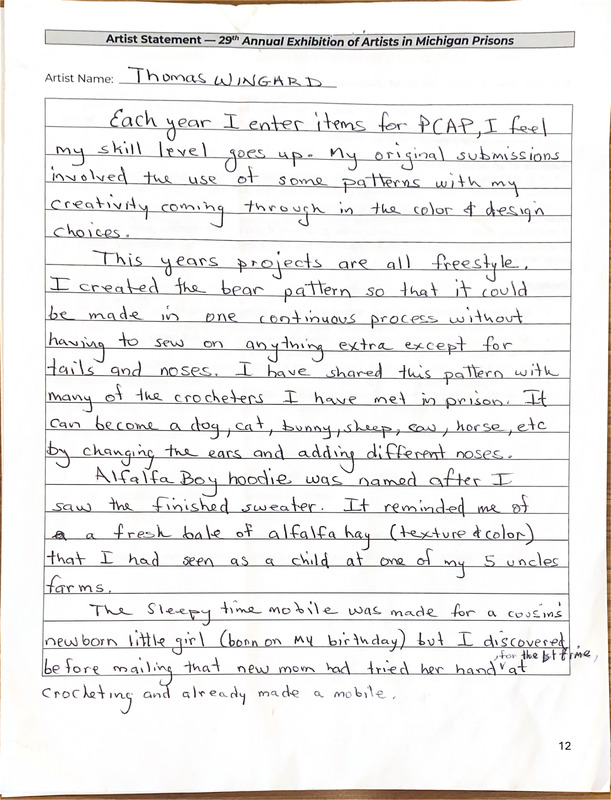 Artist Statement — 29th Annual Exhibition of Artists in Michigan Prisons
Artist Name: Thomas WINGARD
Each year I enter items for PCAP, I feel
my skill level goes up. My original submissions
involved the use of some patterns with my
creativity coming through in the color & design
choices.
This years projects are all freestyle.
I created the bear pattern so that it could
be made in one continuous process without
having to sew on anything extra except for
tails and noses. I have shared this pattern with
many of the crocheters I have met in prison. It
can become a dog, cat, bunny, sheep, cow, horse, etc
by changing the ears and adding different noses.
Alfalfa Boy hoodie was named after I
saw the finished sweater. It reminded me of
a fresh bale of alfalfa hay (texture & color)
that I had seen as a child at one of my 5 uncles
farms.
The Sleepy time mobile was made for a cousin's
newborn little girl (born on MY birthday) but I discovered
before mailing that new mom had tried her hand, for the 1st time, at
crocheting and already made a mobile.
12